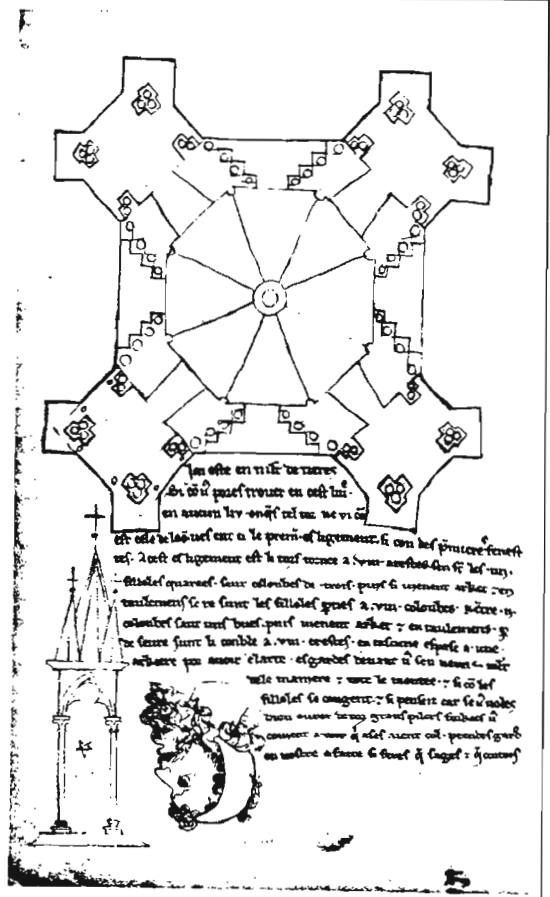 Jai este en mlt de tieres
si cō v' pores trover en cest liv'
en aucun liu onq̄s tel tor ne vi cō
est cele de loō ves ent ci le prem̄. esligement. si con des p̄mieres fenest
res. A cest esligement est li tors tornee a .viii. arestes. sen st̄ les .iiii.
filloles quarees. seur colonbes de .trois. puis si vienent arket . 7 en
taulemens se re sunt les filloles p̄ties a .viii. colonbes. 7 entre .ii.
colonbes saut uns bues. puis vienent arket 7 entaulemens. p̄
de seure sunt li conble a .viii. crestes. en cascune espase a une
arkiere por avoir clarte. esgardes devant v' sen verres mlt
de le maniere 7 tote le montee. 7 si cō les
filloles se cangent. 7 si penseiz car se v' volez
bien ovrer de toz grans pilers forkies v'
covient avoir q̄ ases aient col. prendes gard
en vostre afaire si feres q̄ sages 7 q̄ cortois